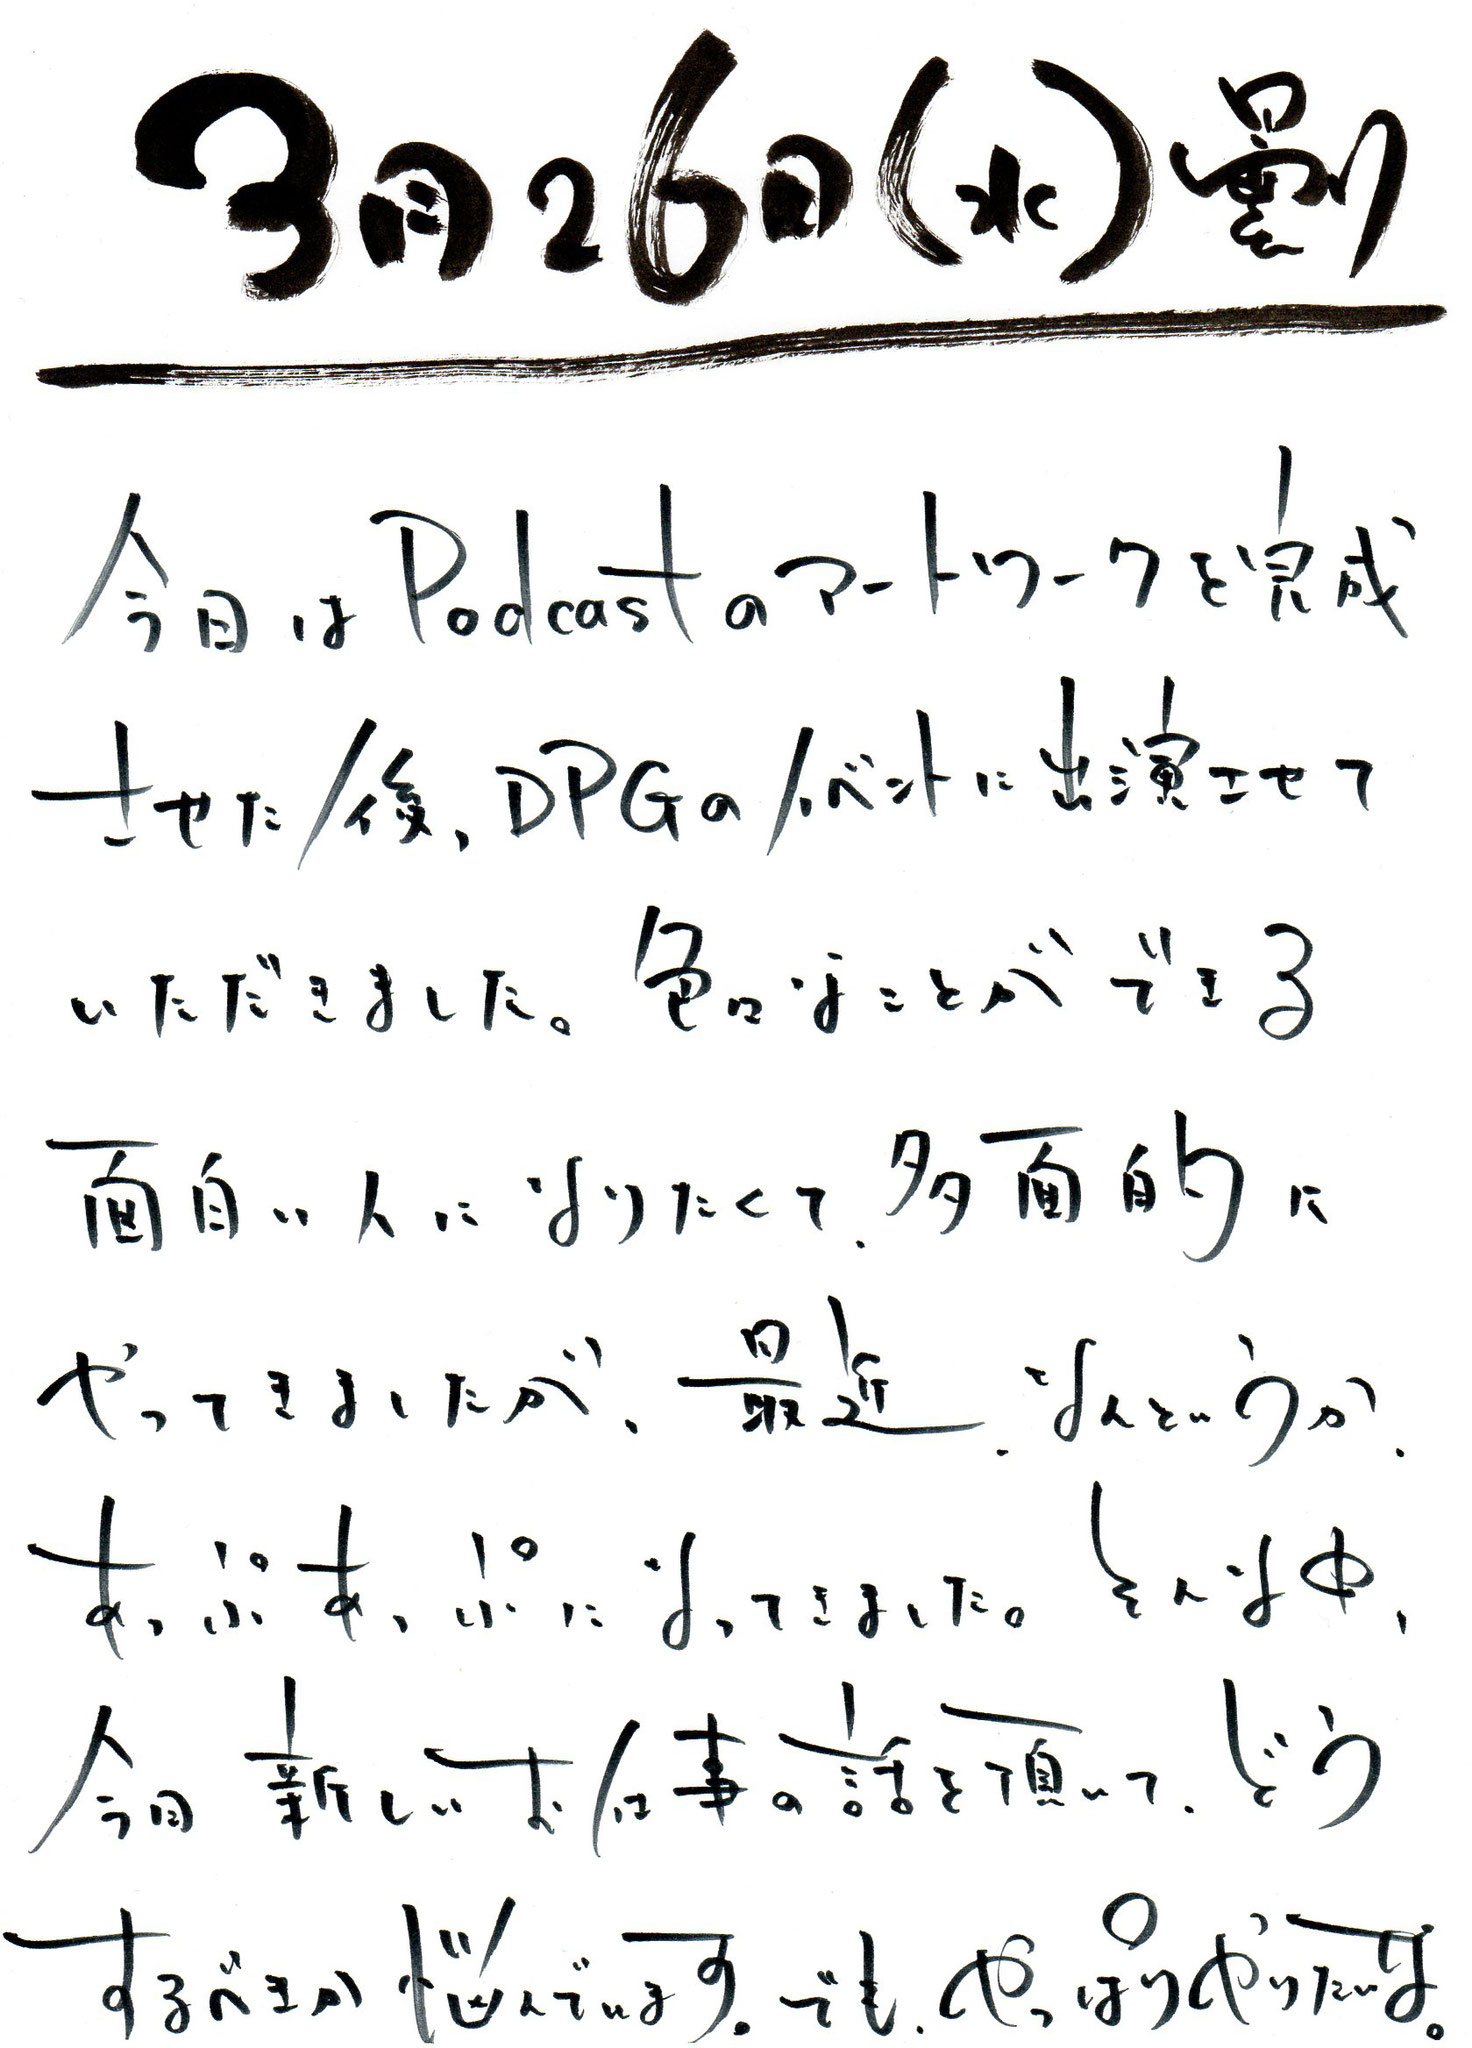 3月26日(水)曇り
今日はPodcastのアートワークを完成
させた後、DPGのイベントに出演させて
いただきました。色々なことができる
面白い人になりたくて、多面的に
やってきましたが、最近、なんというか、
あっぷあっぷになってきました。そんな中、
今日新しいお仕事の話を頂いて、どう
するべきか悩んでいます。でも、やっぱりやりたいな。